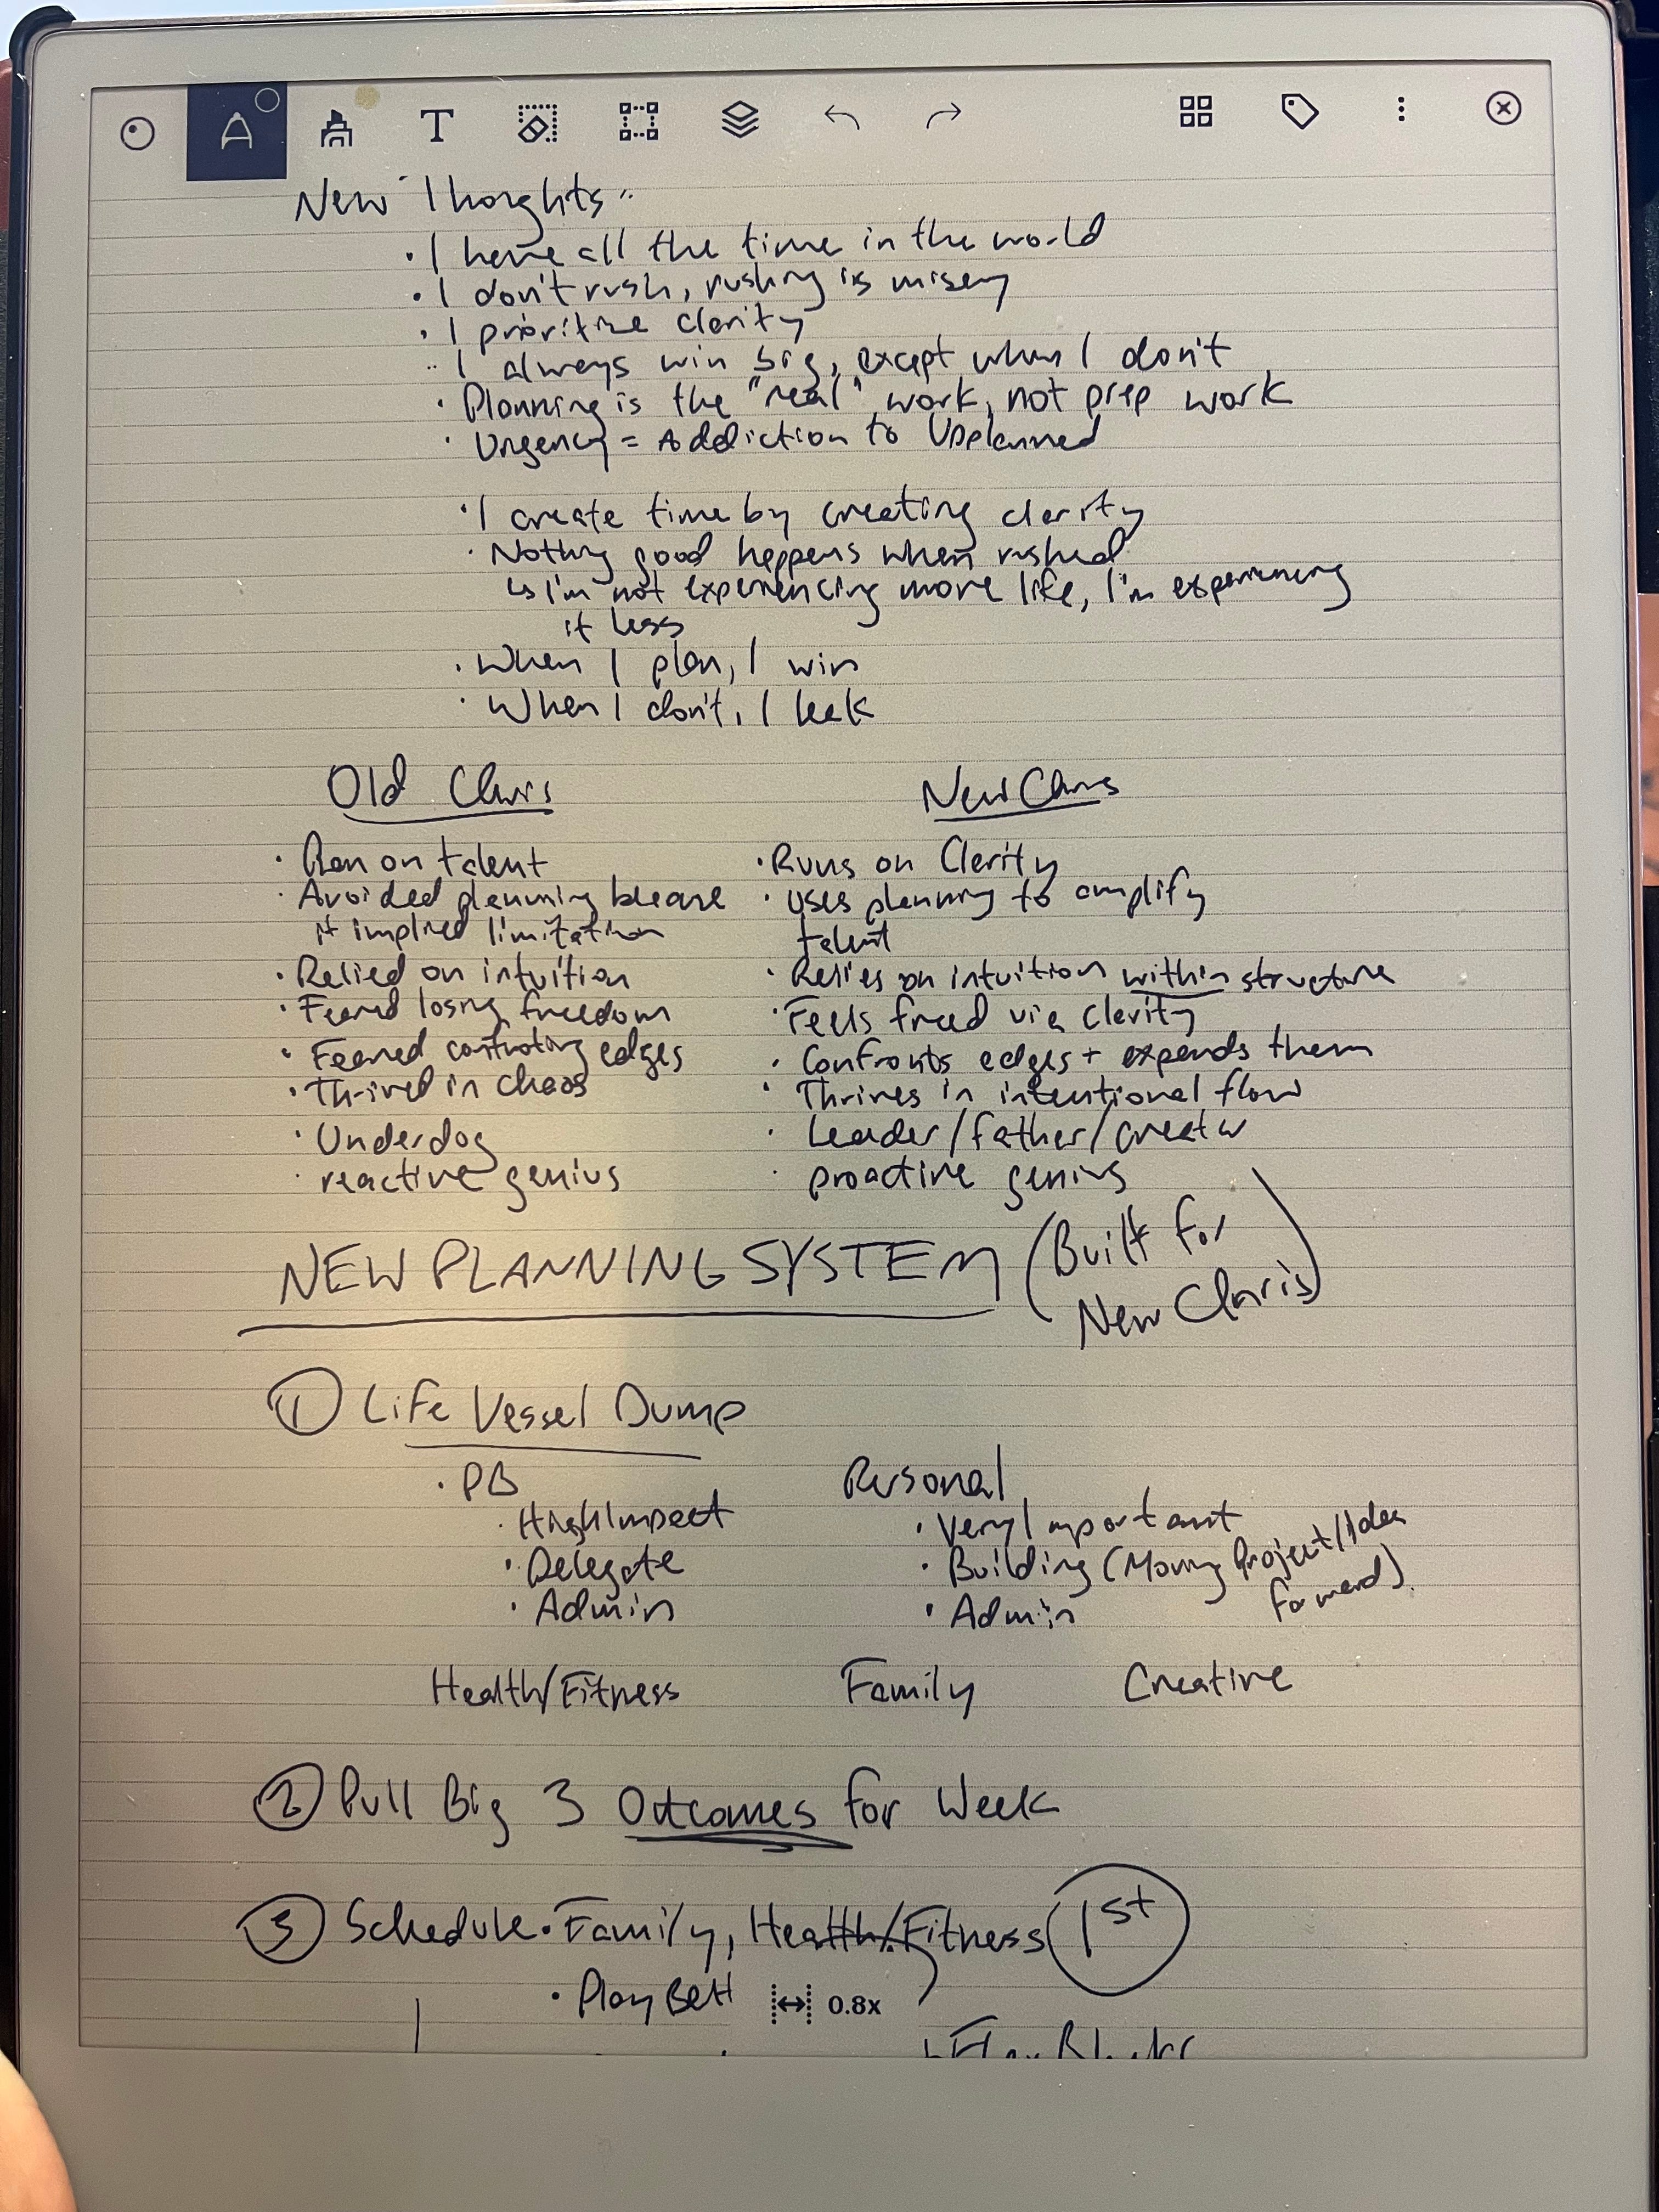 T
New Thoughts:
• I have all the time in the world
• I don't rush, rushing is misery
• I prioritize clarity
• I always win big, except when I don't
• Planning is the "real" work, not prep work
• Urgency = Addiction to Unplanned
• I create time by creating clarity
• Nothing good happens when rushed
↳ I'm not experiencing more life, I'm experiencing
it less
• When I plan, I win
• When I don't, I leak
Old Chris
• Ran on talent
• Avoided planning because
it implied limitation
• Relied on intuition
• Feared losing freedom
• Feared confronting edges
• Thrived in chaos
• Underdog
• reactive genius
New Chris
• Runs on Clarity
• Uses planning to amplify
talent
• Relies on intuition within structure
• Feels freed via clarity
• Confronts edges + expands them
• Thrives in intentional flow
• Leader/father/creator
• proactive genius
NEW PLANNING SYSTEM (Built for
New Chris)
① Life Vessel Dump
• PB
• High Impact
• Delegate
• Admin
Personal
• Very Important
• Building (Moving Project/Idea
forward).
• Admin
Health/Fitness Family Creative
② Pull Big 3 Outcomes for Week
③ Schedule • Family, Health/Fitness 1st
• Play
0.8x
Flex Blocks